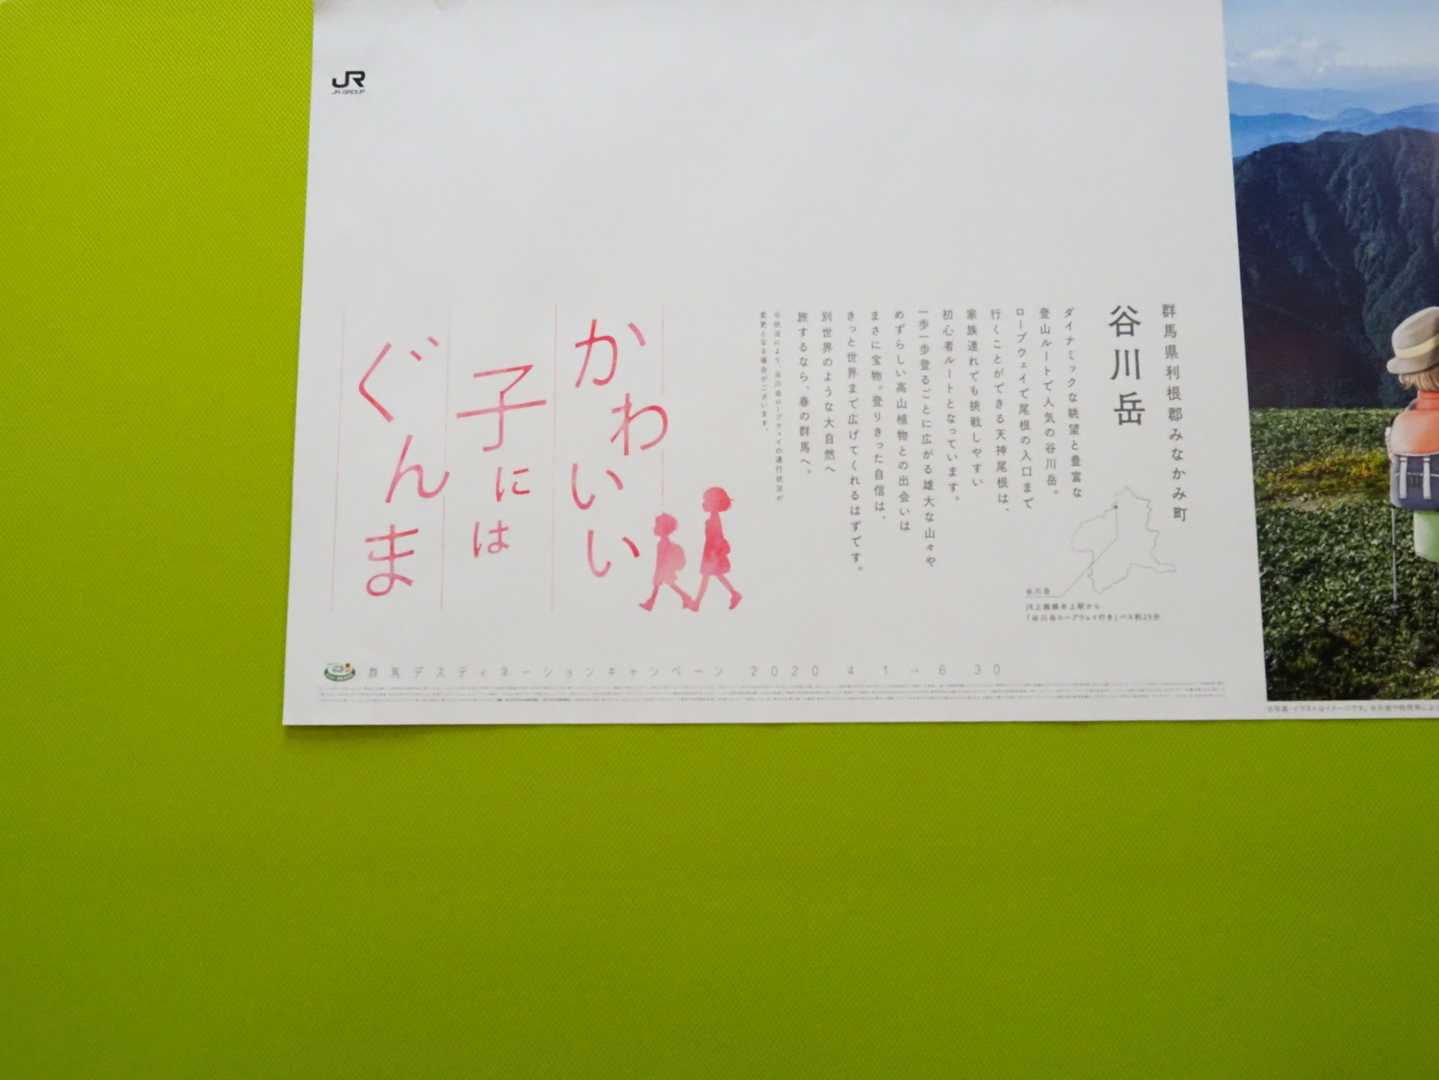 JR
JR GROUP
群馬県利根郡みなかみ町
谷川岳
ダイナミックな眺望と豊富な
登山ルートで人気の谷川岳。
ロープウェイで尾根の入口まで
行くことができる天神尾根は、
家族連れでも挑戦しやすい
初心者ルートとなっています。
一歩一歩登るごとに広がる雄大な山々や
めずらしい高山植物との出会いは
まさに宝物。登りきった自信は、
きっと世界まで広げてくれるはずです。
別世界のような大自然へ
旅するなら、春の群馬へ。
変更となる場合がございます。
かわいい
子には
ぐんま
谷川岳
JR上越線水上駅から
「谷川岳ロープウェイ行き」バス約25分
群馬デスティネーションキャンペーン 2020 4 1 → 6 30